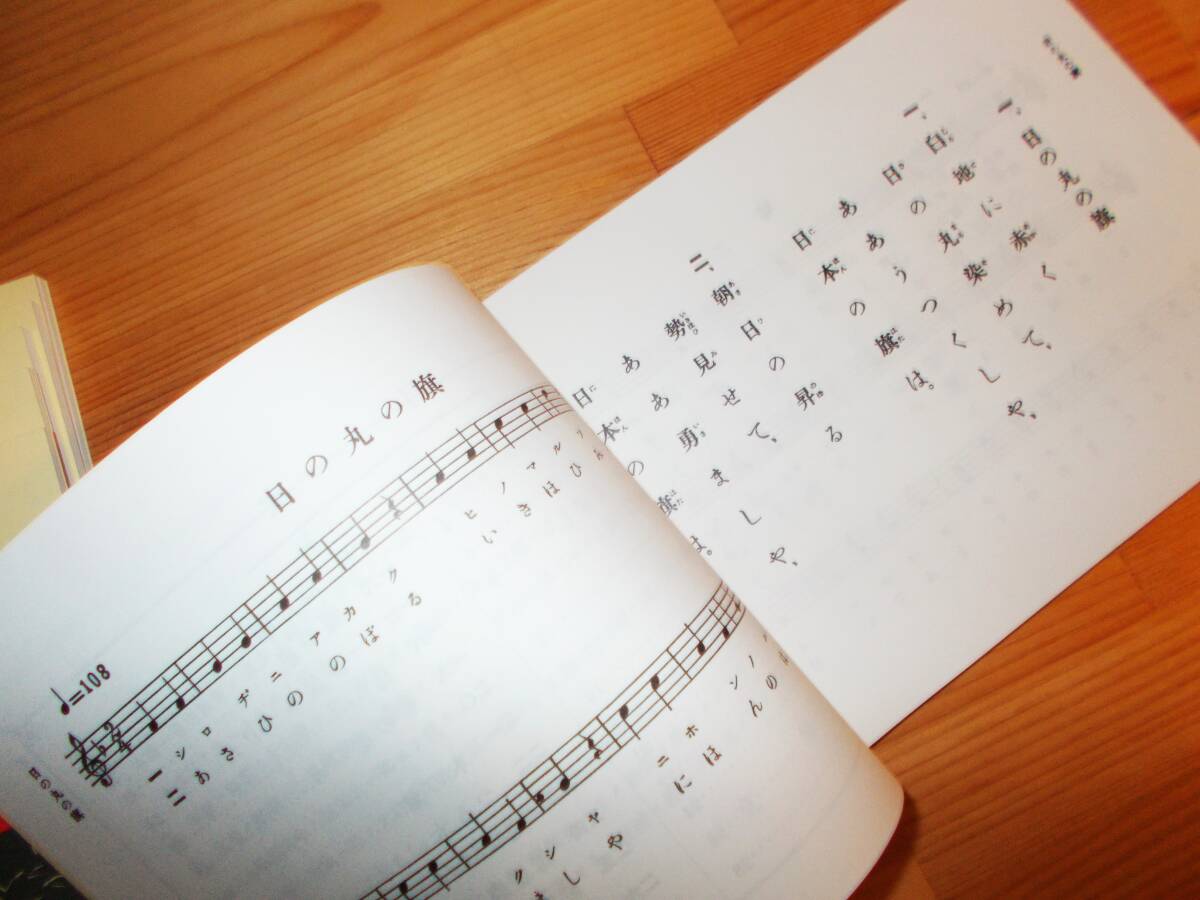 一、日の丸の旗
一、白地に赤く
日の丸染めて、
ああうつくしや、
日本の旗は。
二、朝日の昇る
勢見せて、
ああ勇ましや、
日本の旗は。
日の丸の旗
♩=108
一 シロヂニ アカク ヒノマル
二 あさひの のぼる いきほひ
クシヤ ニホンノ
しや にほんの
日の丸の旗